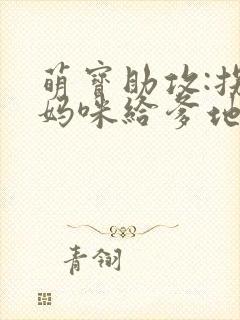 萌寶助攻:拐
媽咪給爹地
青翎